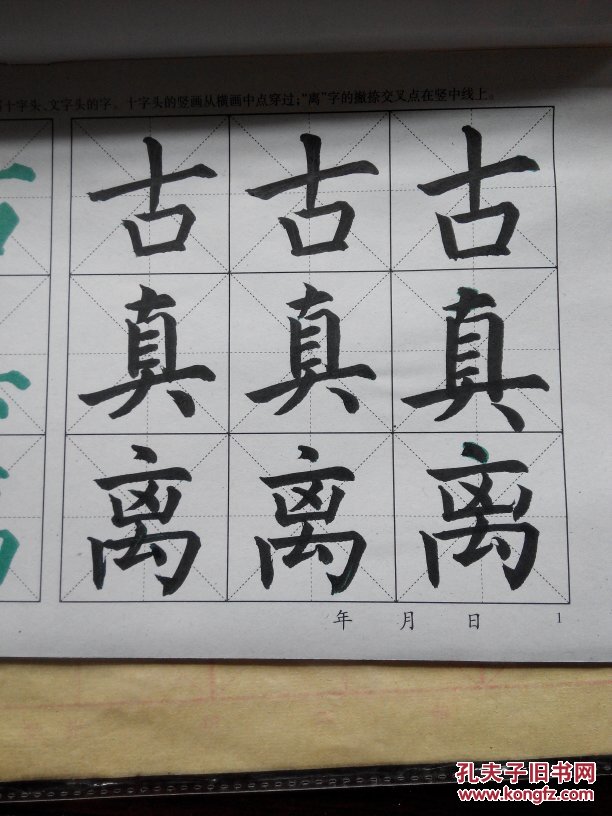 十字头、文字头的字。十字头的竖画从横画中点穿过;“离”字的撇捺交叉点在竖中线上。
古 古 古
真 真 真
离 离 离
年 月 日 1
孔夫子旧书网
www.kongfz.com